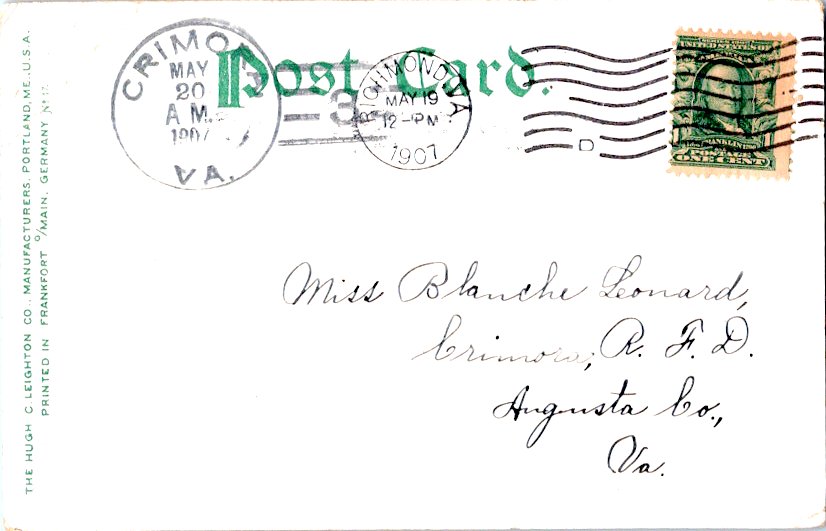 Post Card.
CRIMORA
MAY
20
A M.
1907
VA.
3
RICHMOND, VA
MAY 19
12-PM
1907
D
UNITED STATES OF
AMERICA
FRANKLIN
POSTAGE
ONE CENT
Miss Blanche Leonard,
Crimora, R. F. D.
Augusta Co.,
Va.
THE HUGH C. LEIGHTON CO., MANUFACTURERS, PORTLAND, ME., U.S.A.
PRINTED IN FRANKFORT O/MAIN, GERMANY